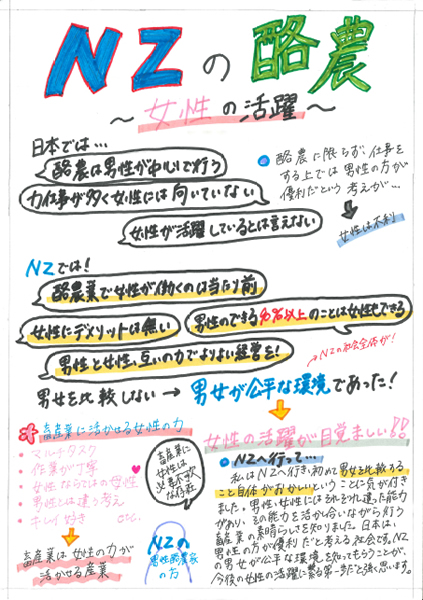 NZの酪農
〜女性の活躍〜
日本では…
酪農は男性が中心で行う
力仕事が多く女性には向いていない
女性が活躍しているとは言えない
酪農に限らず、仕事を
する上では男性の方が
優利だという考えが…
女性は不利
NZでは!
酪農業で女性が働くのは当たり前
女性にデメリットは無い
男性のできる%以上のことは女性もできる
男性と女性、互いの力でよりよい経営を!
NZの社会全体が!
男女を比較しない → 男女が公平な環境であった!
畜産業に活かせる女性の力
・マルチタスク
・作業が丁寧
・女性ならではの母性
・男性とは違う考え
・キレイ好き etc.
畜産業は女性の力が
活かせる産業
畜産業に
女性は
必要不可欠
な存在
NZの
男性酪農家
の方
女性の活躍が目覚ましい!!
NZへ行って…
私はNZへ行き、初めて男女を比較する
こと自体がおかしいということに気が付き
ました。男性、女性にはそれぞれ違った能力
があり、その能力を活かし合いながら行う
畜産業の素晴らしさを知りました。日本は、
男性の方が優利だと考える社会です。NZ
の男女が公平な環境を知ってもらうことが、
今後の女性の活躍に繋る第一歩だと強く思います。